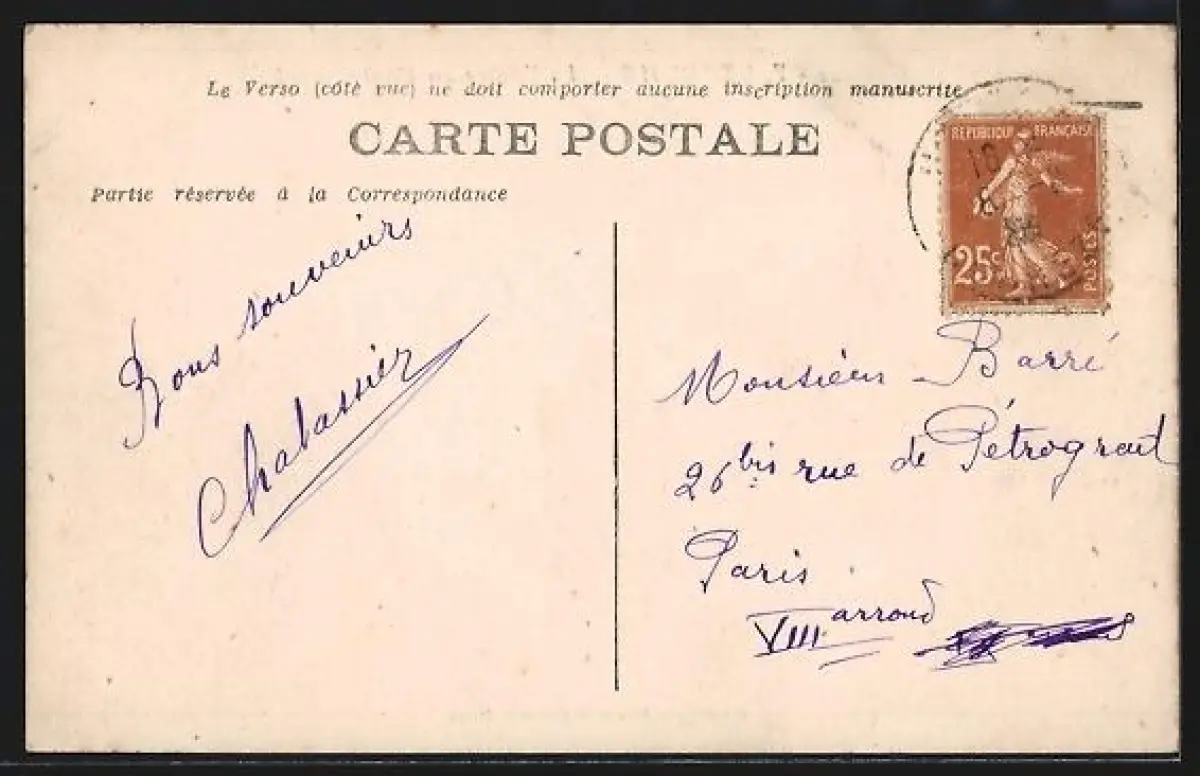 Le Verso (côté vue) ne doit comporter aucune inscription manuscrite
CARTE POSTALE
Partie réservée à la Correspondance
REPUBLIQUE FRANÇAISE
25c
POSTES
Bons souvenirs
Chabassier
Monsieur Barré
26 bis rue de Pétrograd
Paris
VIII arrond